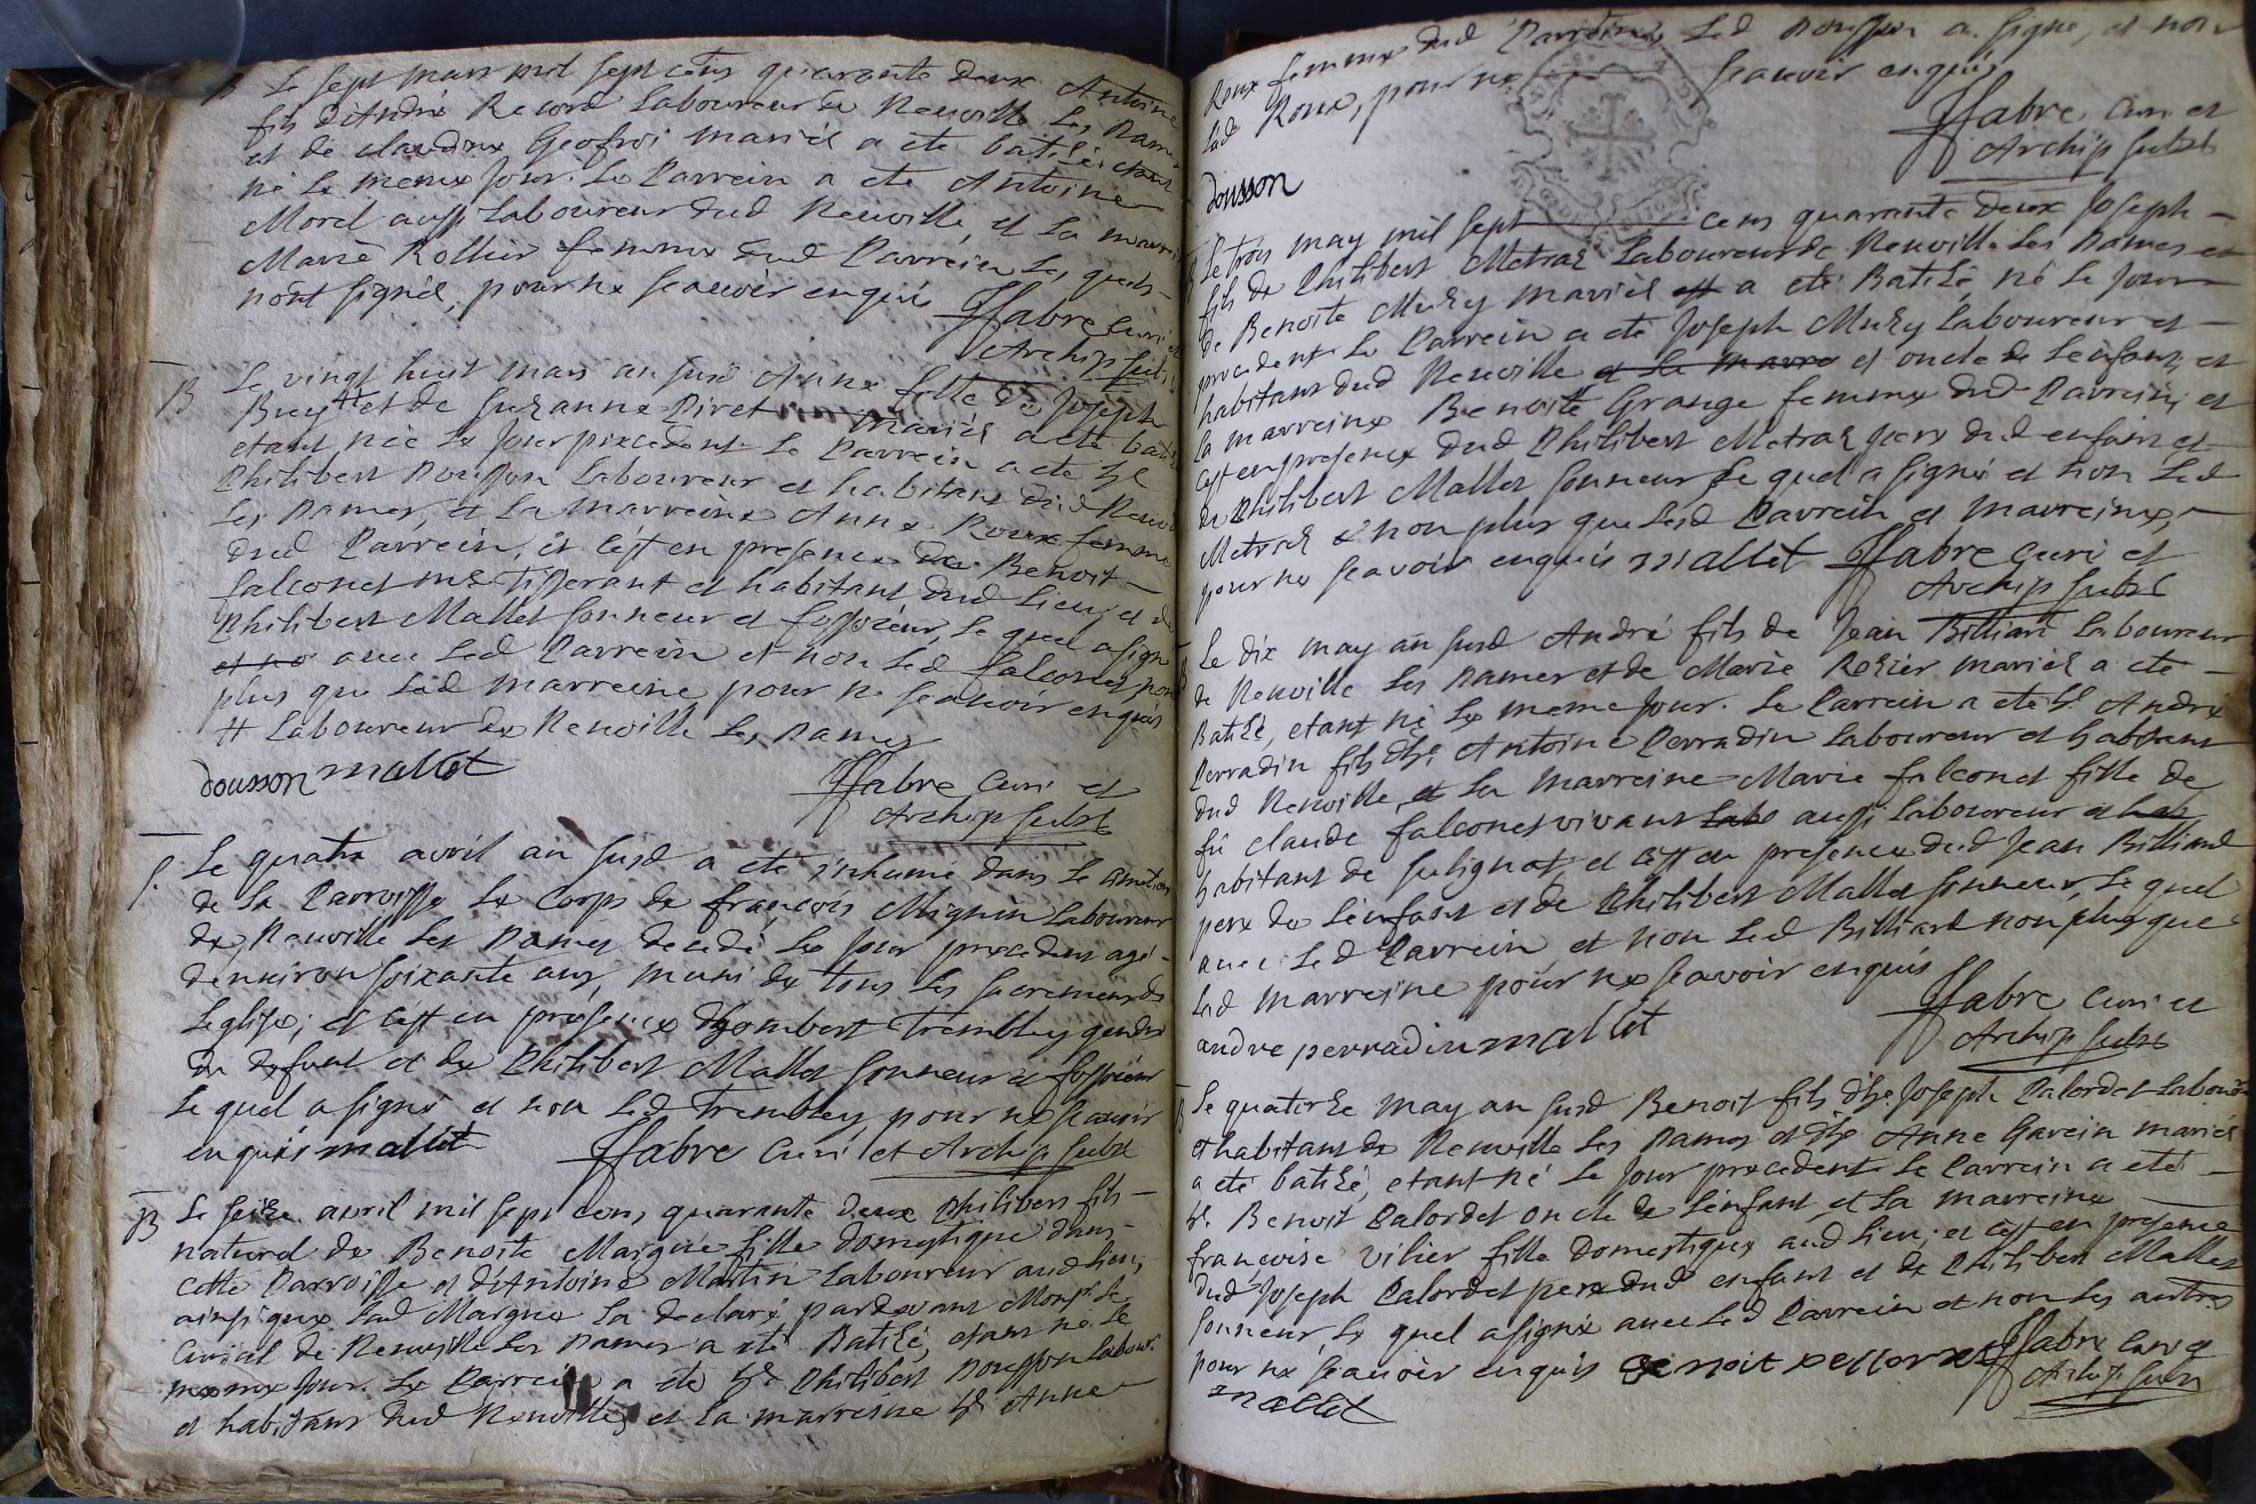 B Le sept mars mil sept cens quarante deux Antoine
fils d'André Record Laboureur de Neuville Les Dames
et de claudine Geofroi mariés a eté batisé, etant
né Le meme Jour. Le Parrein a eté Antoine
Morel aussi Laboureur dud Neuville, et La marreine
Marie Rollier femme dud Parrein Les quels
n'ont signés, pour ne scauoir enquis
ffabre Curé et
Archip subst
B Le vingt huit mars an susd Anne fille de Joseph
Buy # et de suzanne Piret mariés a eté batisée
etant née Le Jour precedent Le Parrein a eté hle
Philibert Dousson Laboureur et habitant dud Neuville
Les Dames, et La marreine Anne Roux femme
dud Parrein, et c'est en presence de Benoit
falconet me Tisserant et habitant dud Lieu, et de
Philibert Mallet sonneur et fossoieur, Le quel a signé
et no auec Led Parrein et non Led falconet, non
plus que Lad marreine pour ne scauoir enquis
# Laboureur de Neuville Les Dames
dousson mallet
ffabre Curé et
Archip subst
S. Le quatre avril an susd a eté inhumé dans Le cimetiere
de La Parroisse Le Corps de françois Mignin Laboureur
de Neuville Les Dames decedé Le Jour precedent agé
d'enuiron soixante ans, muni de tous Les sacremens de
L'eglise; et c'est en presence d'hombert Trembley gendre
du defunt et de Philibert Mallet sonneur et fossoieur
Le quel a signé et non Led Trembley pour ne scauoir
enquis mallet ffabre Curé et Archip subst
B Le seize avril mil sept cens quarante deux Philibert fils
naturel de Benoite Maigne fille domestique dans
cette Parroisse et d'Antoine Martin Laboureur aud Lieu,
ainsi que Lad Maigne La declaré pardevant Monsr Le
Curial de Neuville Les Dames a eté Batisé, etant né Le
meme Jour. Le Parrein a eté hle Philibert Dousson Labour.
et habitant dud Neuville, et La marreine hle Anne
Roux femme dud Parrein, Led Dousson a signé, et non
Lad Roux, pour ne scauoir enquis
ffabre Curé et
Archip subst
dousson
B Le trois may mil sept cens quarante deux Joseph
fils de Philibert Metras Laboureur de Neuville Les Dames et
de Benoite Muzy mariés est a eté Batisé, né Le Jour
precedent Le Parrein a eté Joseph Muzy Laboureur et
habitant dud Neuville et La marre et oncle de L'enfant, et
La marreine Benoite Grange femme dud Parrein, et
c'est en presence dud Philibert Metras pere dud enfant et
de Philibert Mallet sonneur Le quel a signé et non Led
Metras non plus que Lesd Parrein et marreine,
pour ne scavoir enquis mallet ffabre Curé et
Archip subst
B Le dix may an susd André fils de Jean Billiard Laboureur
de Neuville Les Dames et de Marie Rozier mariés a eté
Batisé, etant né Le meme Jour. Le Parrein a eté hle André
Perradin fils d'he Antoine Perradin Laboureur et habitant
dud Neuville, et La marreine Marie falconet fille de
fû claude falconet vivant Labo aussi Laboureur et hab
habitant de sulignat, et c'est en presence dud Jean Billiard
pere de L'enfant et de Philibert Mallet sonneur, Le quel
auec Led Parrein, et non Led Billiard non plus que
Lad marreine pour ne scavoir enquis
ffabre Curé et
Archip subst
andre perradin mallet
B Le quatorze may an susd Benoit fils d'he Joseph Palordet Labour
et habitant de Neuville Les Dames et d'he Anne Garein mariés
a eté batisé, etant né Le Jour precedent Le Parrein a eté
hle Benoit Palordet oncle de L'enfant, et La marreine
françoise vilier fille domestique aud Lieu; et c'est en presence
dud Joseph Palordet pere dud enfant et de Philibert Mallet
sonneur, Le quel a signé auec Led Parrein et non Les autres
pour ne scauoir enquis
ffabre Curé et
Archip subst
mallet